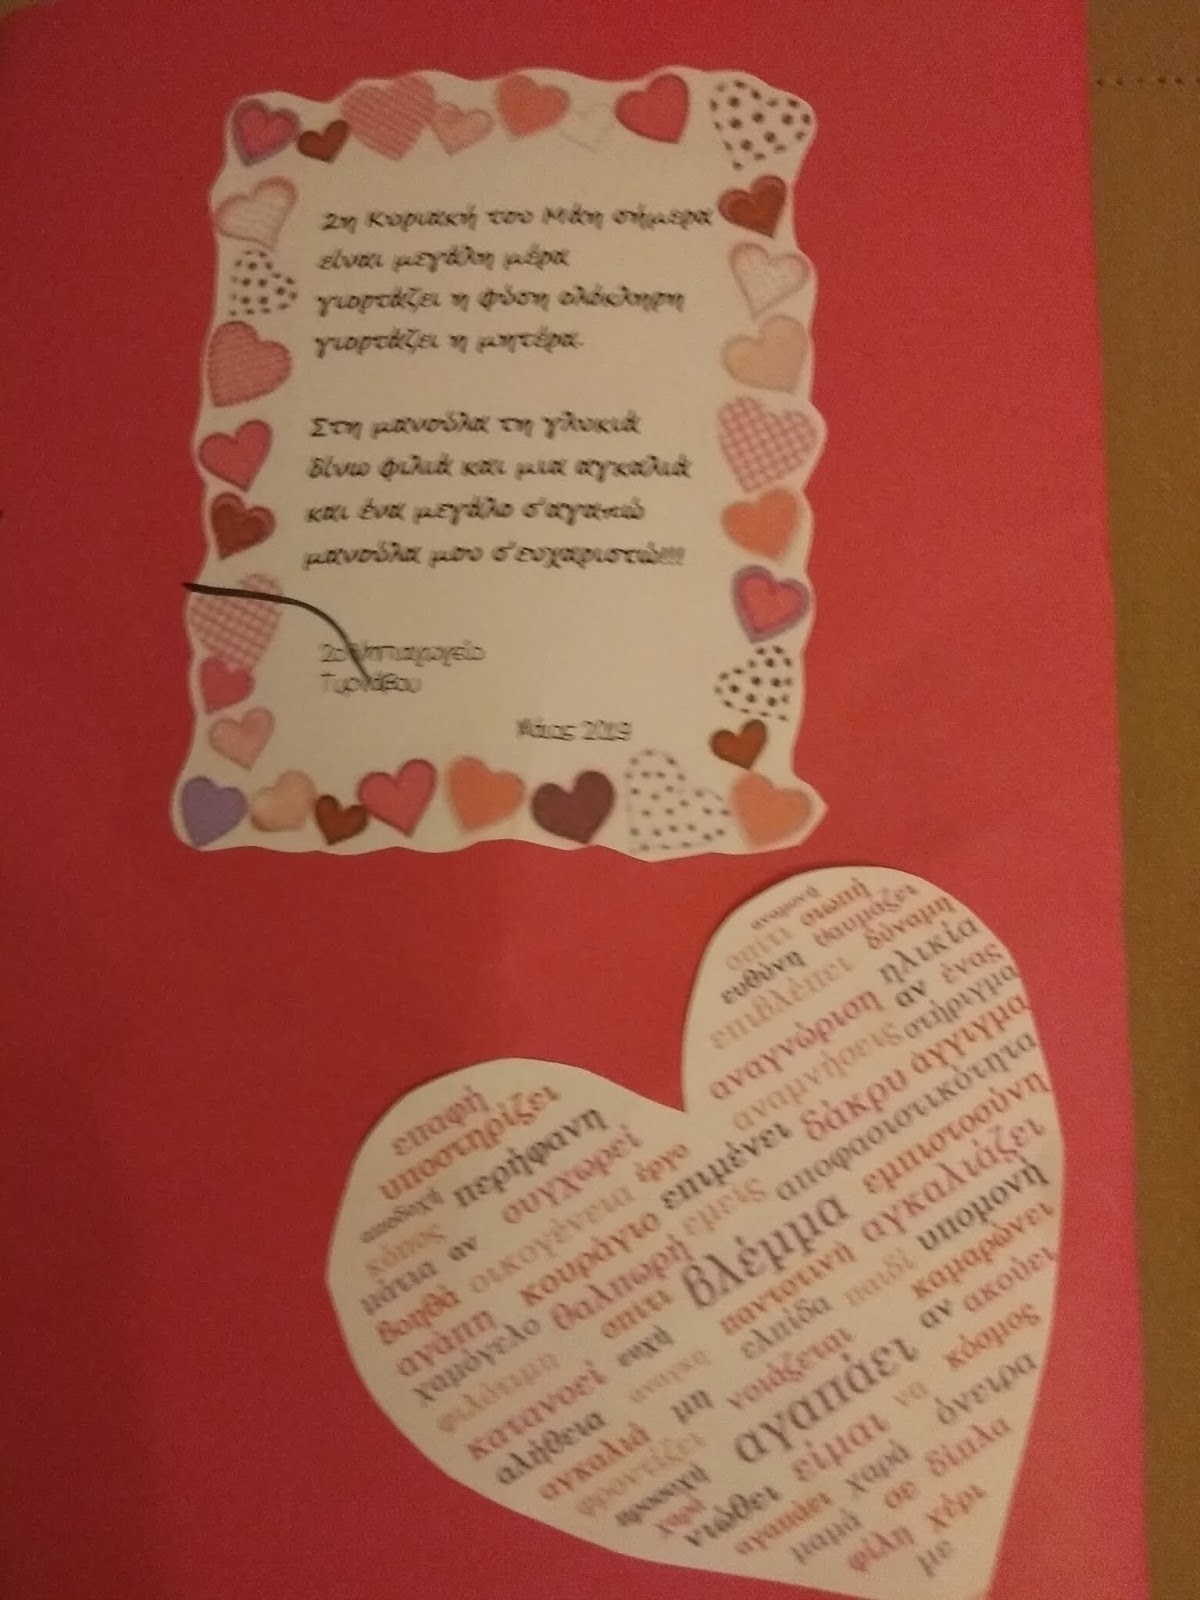 2η Κυριακή του Μάη σήμερα
είναι μεγάλη μέρα
γιορτάζει η φύση ολόκληρη
γιορτάζει η μητέρα.
Στη μανούλα τη γλυκιά
δίνω φιλιά και μια αγκαλιά
και ένα μεγάλο σ'αγαπώ
μανούλα μου σ'ευχαριστώ!!!
2ο Νηπιαγωγείο
Τυρνάβου
Μάιος 2019
σπίτι σιωπή
ευθύνη θαυμάζει
επιβλέπει δύναμη
αναγνώριση ηλικία
αναμνήσεις αν ένας
δάκρυ στήριγμα
άγγιγμα
επαφή
υποστηρίζει
αποδοχή περήφανη
κόπος συγχωρεί
μάτια αν οικογένεια έργο επιμένει αποφασιστικότητα
βοηθά κουράγιο εμείς εμπιστοσύνη
αγάπη θαλπωρή βλέμμα αγκαλιάζει
χαμόγελο σπίτι παντοτινή υπομονή
φιλότιμη ευχή ελπίδα παιδί καμαρώνει
κατανοεί νοιάζεται αν ακούει
αλήθεια μη αγαπάει κόσμος
αγκαλιά φροντίζει είμαι να όνειρα
προσοχή
χαρά νιώθει χαρά δίπλα
αγαπάει σε
μαμά χέρι
φίλη με